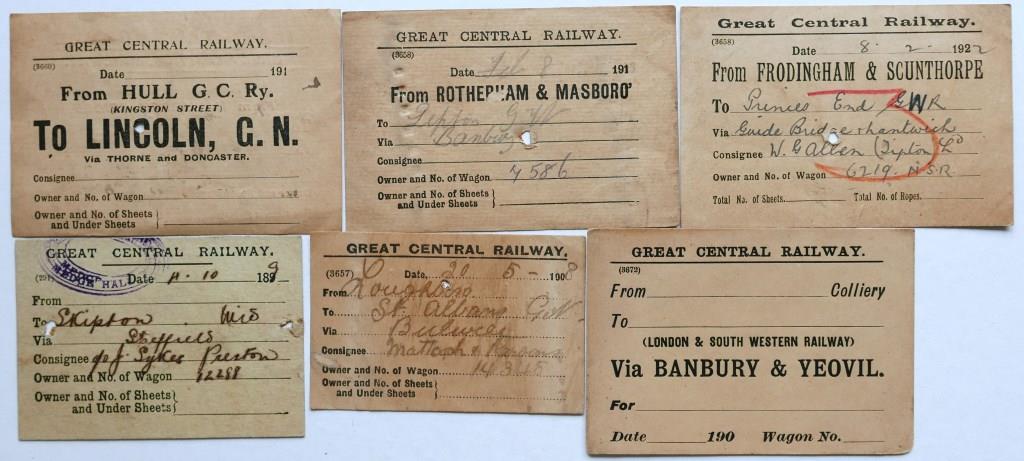 GREAT CENTRAL RAILWAY.
(3660)
Date 191
From HULL G. C. Ry.
(KINGSTON STREET)
To LINCOLN, G. N.
Via THORNE and DONCASTER.
Consignee
Owner and No. of Wagon
Owner and No. of Sheets
and Under Sheets
GREAT CENTRAL RAILWAY.
(3658)
Date Feb 8 191
From ROTHERHAM & MASBORO'
To Tipton G W
Via Banbury
Consignee
Owner and No. of Wagon 7586
Owner and No. of Sheets
and Under Sheets
Great Central Railway.
(3658)
Date 8. 2. 1922
From FRODINGHAM & SCUNTHORPE
To Princes End GWR
Via Guide Bridge & Nantwich
Consignee W. G Allen (Tipton) Ld
Owner and No. of Wagon 6219. N.S.R.
Total No. of Sheets. Total No. of Ropes.
GREAT CENTRAL RAILWAY.
Date 11-10 1899
From
To Skipton Mid
Via Sheffield
Consignee Sykes Preston
Owner and No. of Wagon 12288
Owner and No. of Sheets
and Under Sheets
GREAT CENTRAL RAILWAY.
(3657) Date, 20 5- 1908
From Loughboro
To St. Albans G.N.
Via Bulwell
Consignee
Owner and No. of Wagon
Owner and No. of Sheets
and Under Sheets
GREAT CENTRAL RAILWAY.
(3672)
From Colliery
To
(LONDON & SOUTH WESTERN RAILWAY)
Via BANBURY & YEOVIL.
For
Date 190 Wagon No.